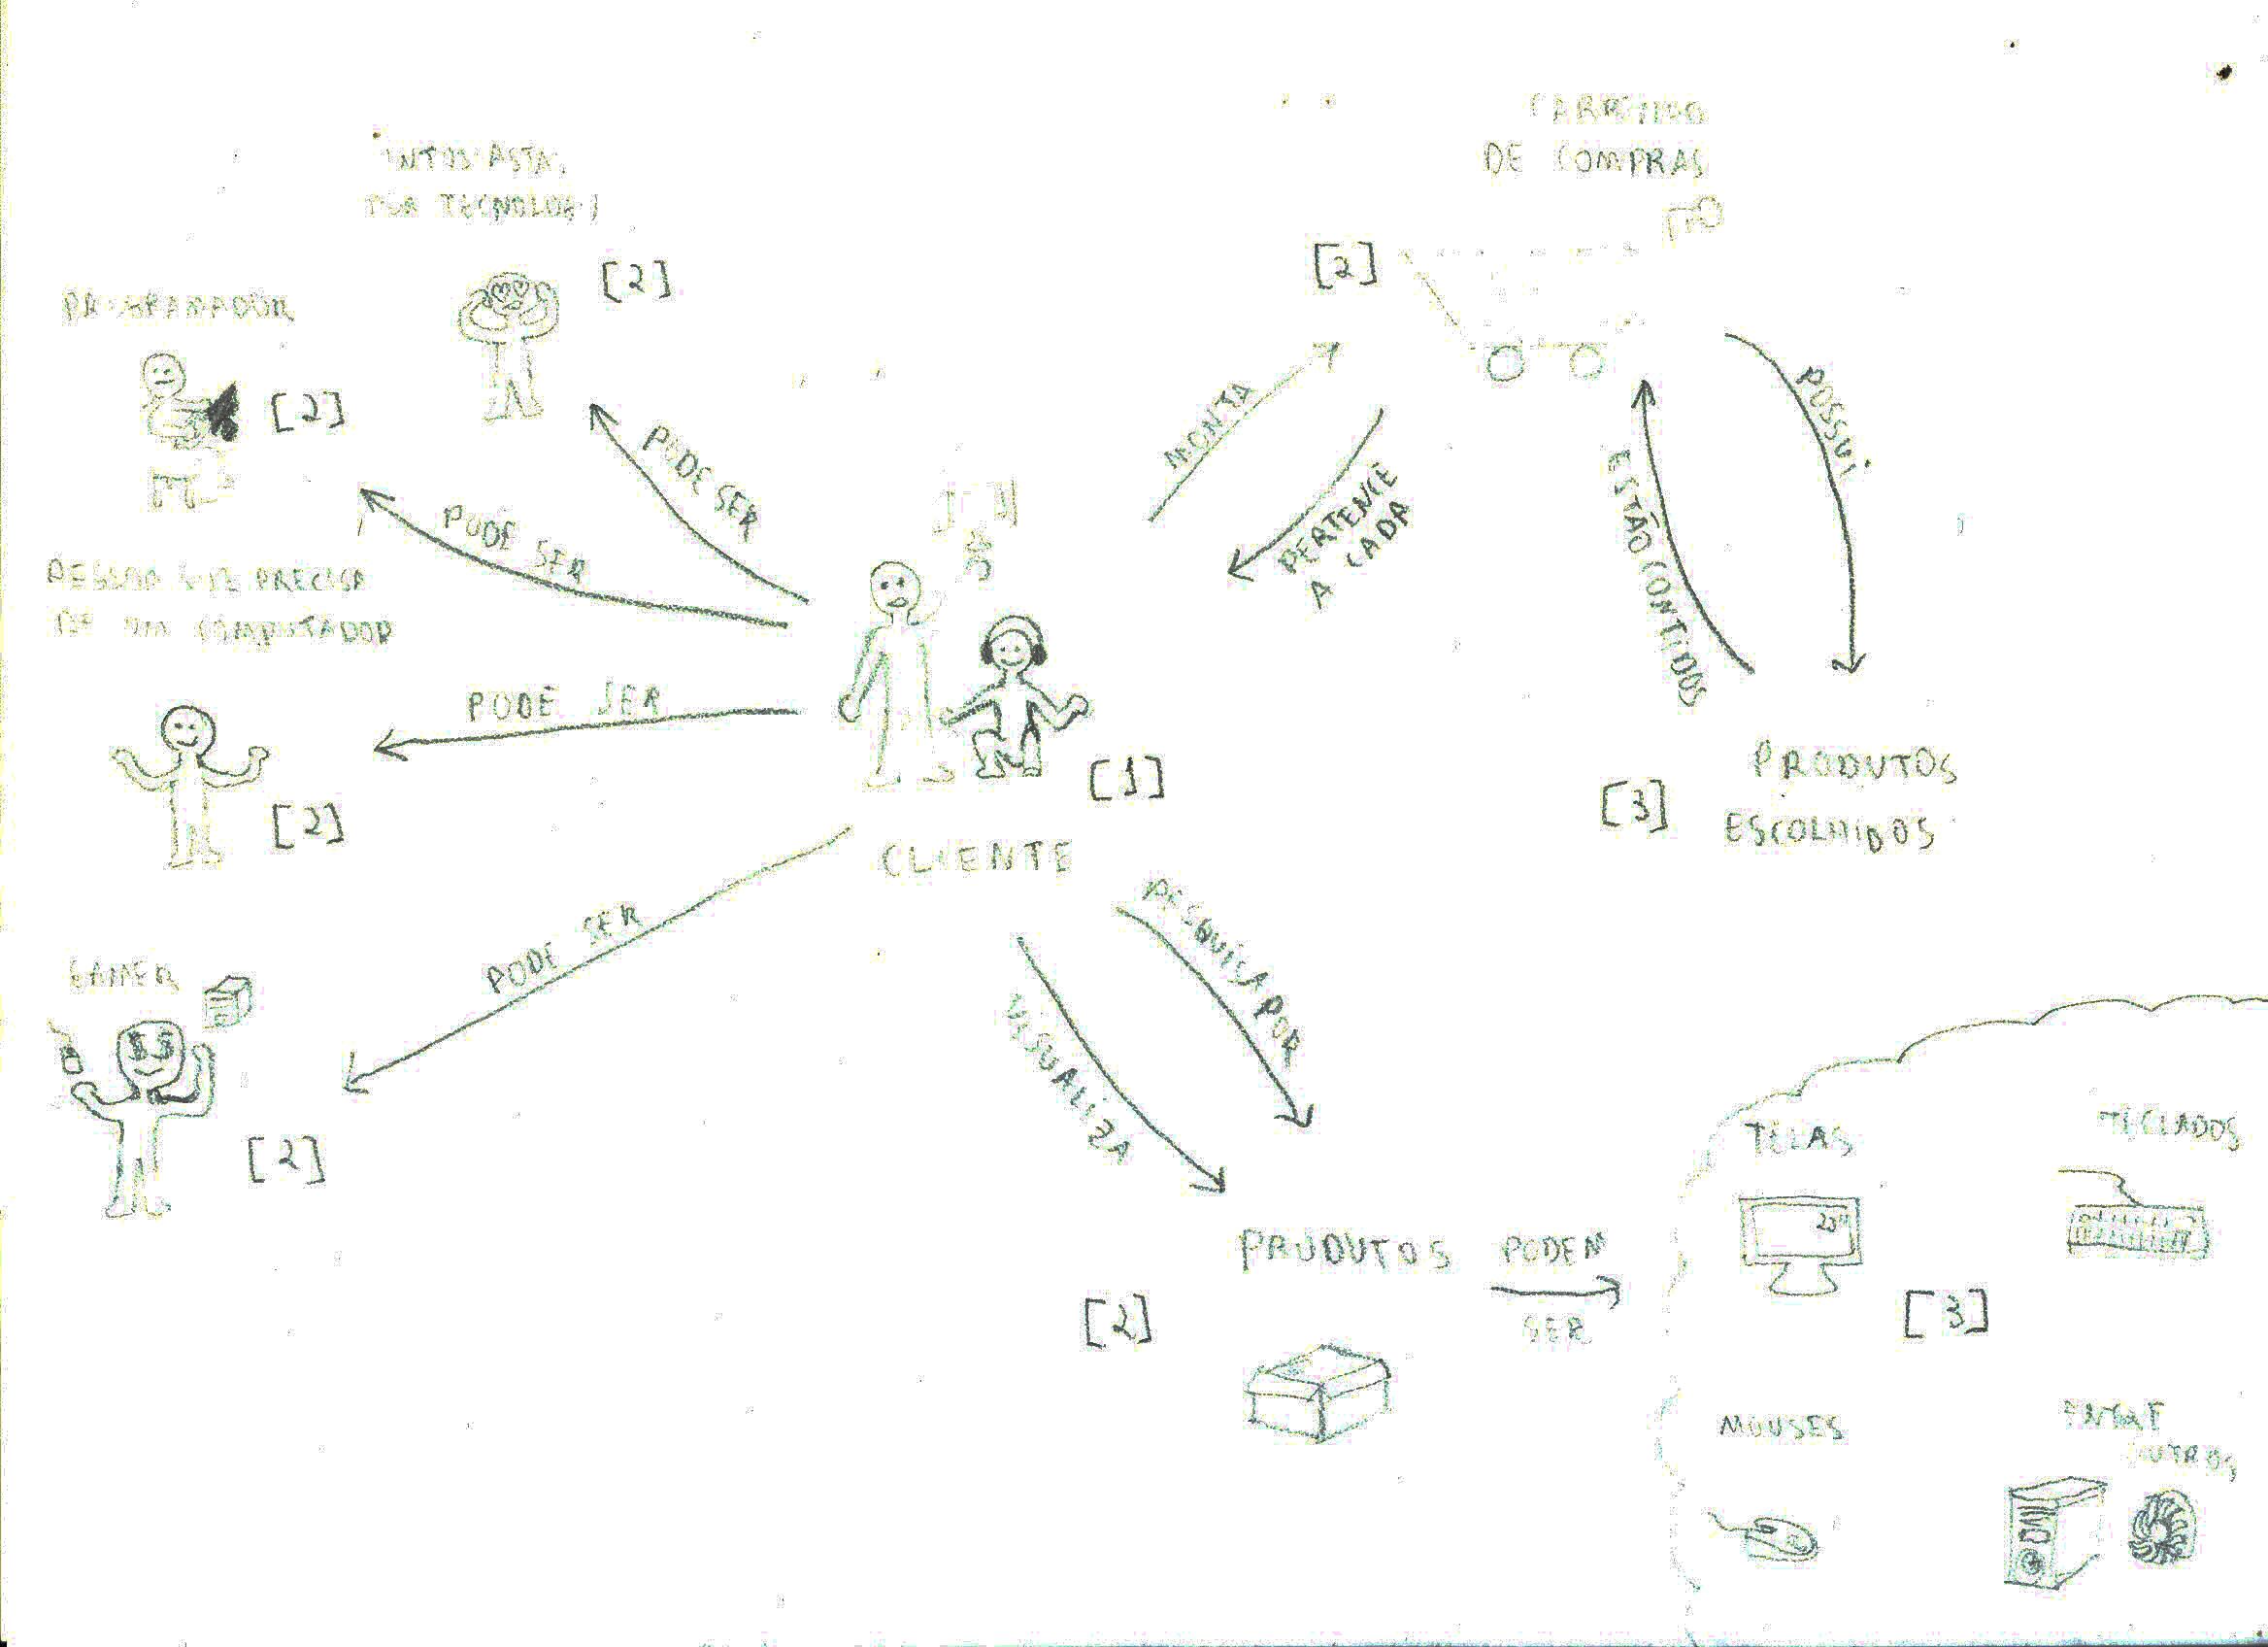 CARRINHO
DE COMPRAS
ENTUSIASTA
POR TECNOLOGI
[2]
[2]
PROGRAMADOR
[2]
MONTA
POSSUI
PODE SER
PERTENCE
A CADA
ESTÃO CONTIDOS
PODE SER
PESSOA QUE PRECISA
DE UM COMPUTADOR
PODE SER
[2]
[1]
CLIENTE
[3]
PRODUTOS
ESCOLHIDOS
PODE SER
PESQUISA POR
VISUALIZA
GAMER
$ $
[2]
TELAS
TECLADOS
23"
PRODUTOS
PODEM
SER
[2]
[3]
MOUSES
ENTRE
OUTROS